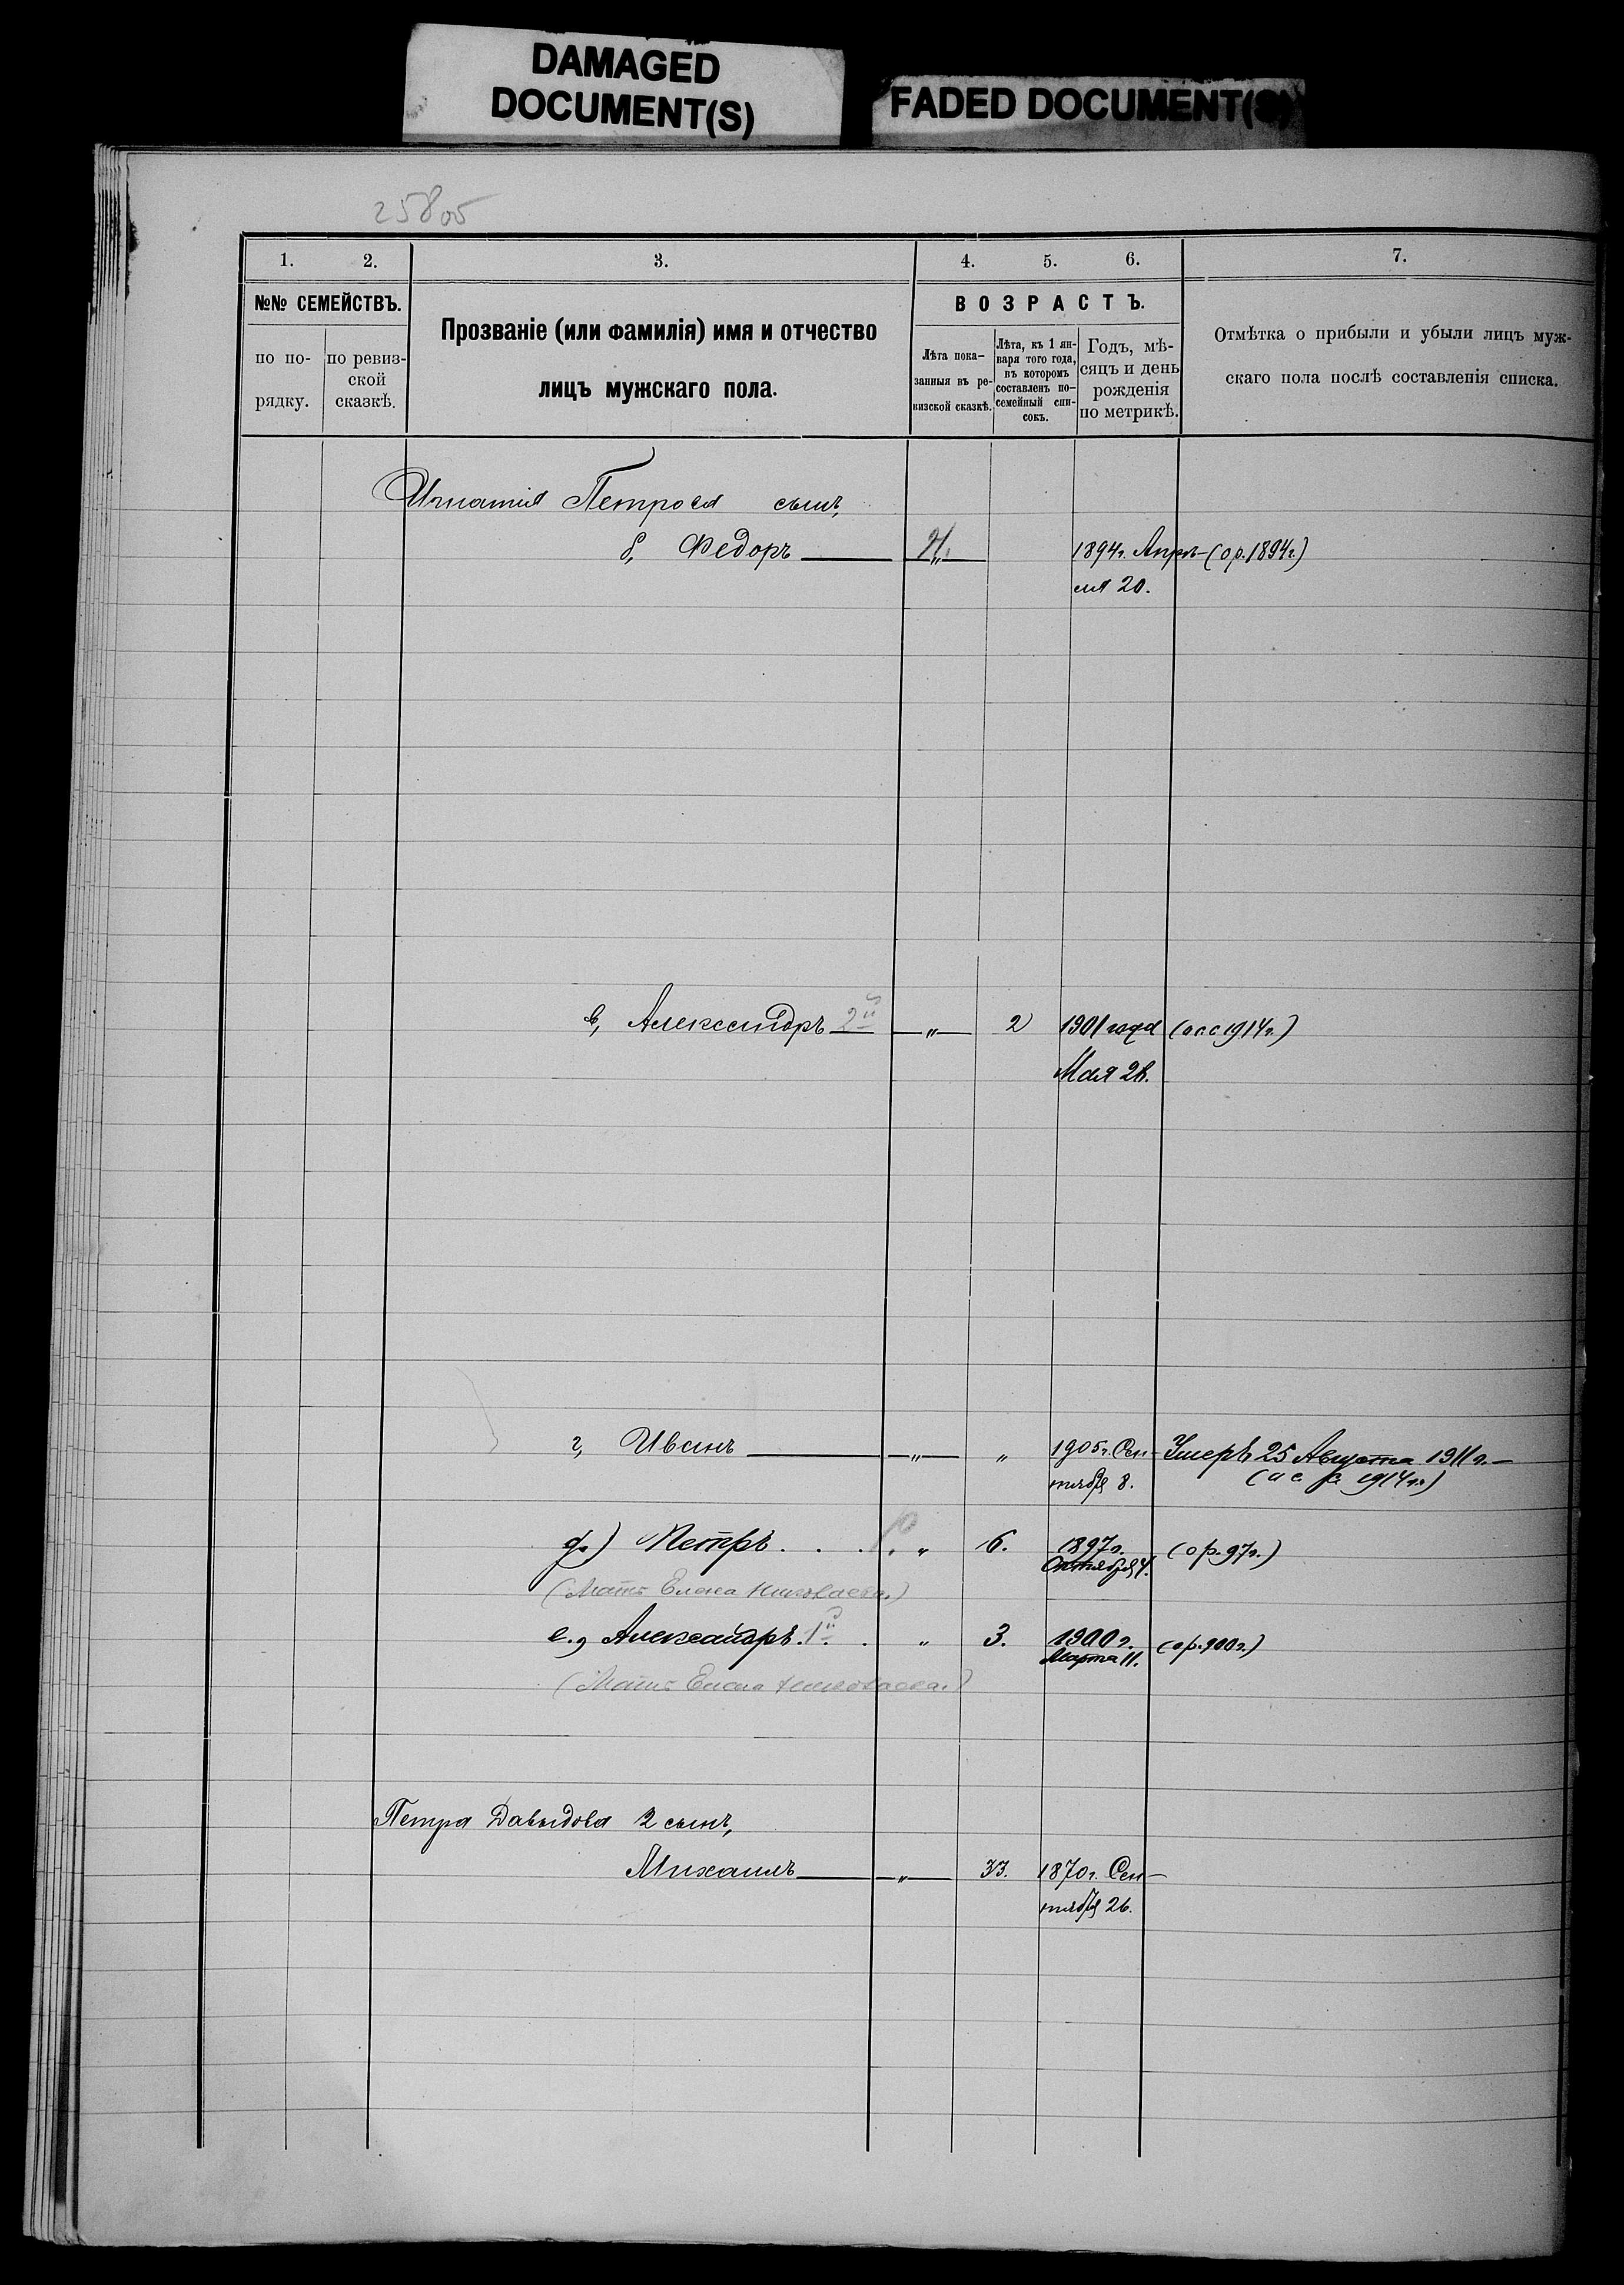 DAMAGED
DOCUMENT(S)
FADED DOCUMENT(S)
25805
1. 2. 3. 4. 5. 6. 7.
№№ СЕМЕЙСТВЪ.
по по-
рядку.
по ревиз-
ской
сказкѣ.
Прозваніе (или фамилія) имя и отчество
лицъ мужскаго пола.
ВОЗРАСТЪ.
Лѣта пока-
занныя въ ре-
визской сказкѣ.
Лѣта, къ 1 ян-
варя того года,
въ которомъ
составленъ по-
семейный спи-
сокъ.
Годъ, мѣ-
сяцъ и день
рожденія
по метрикѣ.
Отмѣтка о прибыли и убыли лицъ муж-
скаго пола послѣ составленія списка.
Игнатія Петрова сынъ,
б, Федоръ — „ — 1894г. Апрѣ- (ор. 1894г.)
ля 20.
в, Александръ 2й — „ — 2 1901 года (о с с 1914г.)
Мая 28.
г, Иванъ — „ — „ 1905г. Сен- Умеръ 25 Августа 1911 г. —
тября 8. 1914г.)
д.) Петръ . . . „ 6. 1897г. (ор. 97г.)
Октября 4.
(Мать Елена Николаева.)
е., Александръ. 1й . . „ 3. 1900г. (ор. 900г.)
Марта 11.
(Мать Елена Николаева.)
Петра Давыдова 2 сынъ,
Михаилъ — „ — 33. 1870г. Сен-
тября 26.